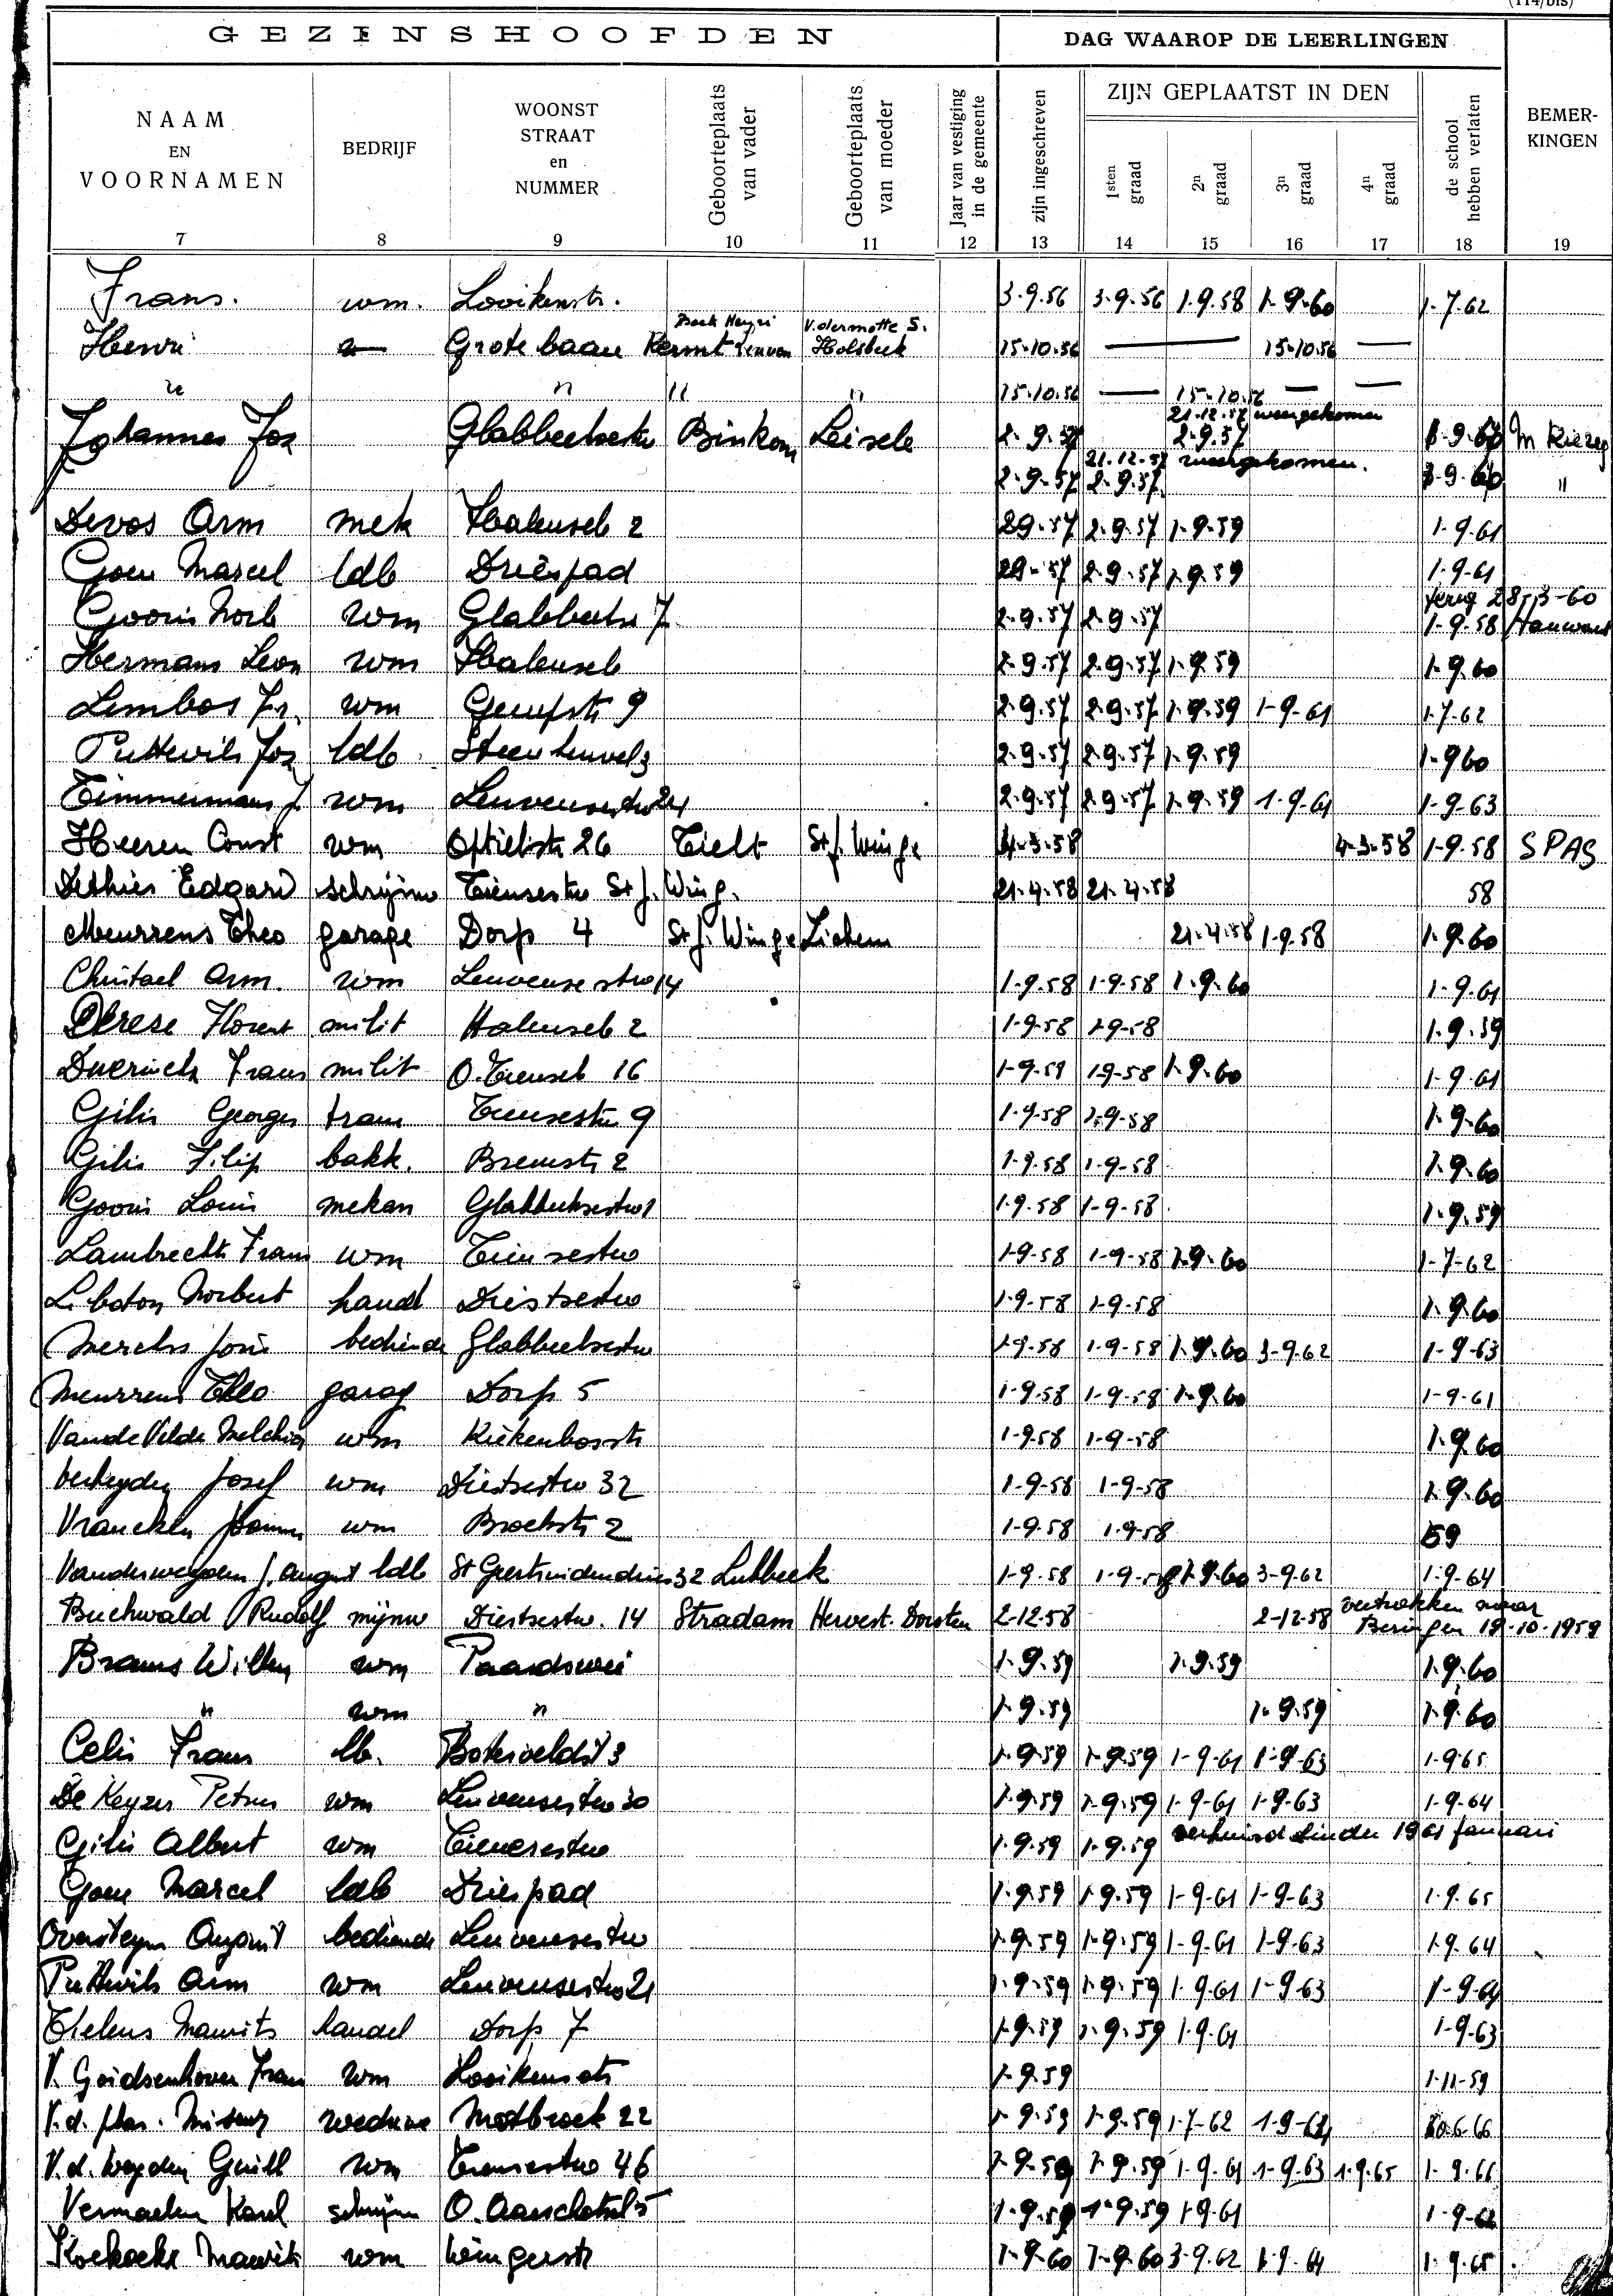 (114/bis)
GEZINSHOOFDEN DAG WAAROP DE LEERLINGEN
NAAM EN VOORNAMEN BEDRIJF WOONST STRAAT en NUMMER Geboorteplaats van vader Geboorteplaats van moeder Jaar van vestiging in de gemeente zijn ingeschreven ZIJN GEPLAATST IN DEN 1sten graad 2n graad 3n graad 4n graad de school hebben verlaten BEMERKINGEN
7 8 9 10 11 12 13 14 15 16 17 18 19
Frans. wm. Looikenstr. 3.9.56 3-9-56 1.9.58 1-9-60 1-7-62
Henri Grote baan Kermt Leuven V.dermotte S. Holsbeek 15-10.56 — 15-10.56 —
" " " 15-10.56 — 15-10.56 — —
21.12.57 weergekomen
Johannes Jos Glabbeeksestw Binkom Leisele 2-9.57 2-9.57
21.12.57 weergekomen.
2-9-57 2-9.57 "
Devos Arm mek Halenseb 2 2.9.57 2-9.57 1-9.59 1-9.61
Goen Marcel ldb Driespad 2.9.57 2-9.57 1.9.59 1-9-61
terug 28-3-60
Gooris Norb wm Glabbeekse 7 2-9.57 2-9.57 1-9.58
Hermans Leon wm Halenseb 2.9.57 2-9.57 1-9.59 1-9.60
Lembos Fr. wm Gempstr 9 2-9.57 2-9.57 1-9.59 1-9-61 1-7-62
Puttevils Jos ldb Steenheuvel 3 2-9.57 2-9.57 1-9.59 1-9 60
Timmermans J. wm Leuvensestw 24 2-9.57 2-9.57 1-9.59 1-9-61 1-9-63
Heeren Const wm Optielstr 26 Tielt St. J. Winge 4-3-58 4-3-58 1-9-58 SPAS
Dethier Edgard schrijnw Tiensestw St J. Wing. 21-4-58 21-4-58 58
Meurrens Theo garage Dorp 4 St J. Winge Zichem 21-4-58 1-9-58 1-9.60
Christael Arm. wm Leuvensestw 14 1-9-58 1-9-58 1-9-60 1-9-61
Derese Florent milit Halenseb 2 1-9-58 1-9-58 1-9.59
Duerinckx Frans milit O. Tienseb 16 1-9.59 1-9-58 1-9.60 1-9-61
Gilis Georges tram Tiensestw 9 1-9-58 1-9-58 1-9-60
Gilis Filip bakk. Bremstr 2 1-9-58 1-9-58 1-9.60
Gooris Louis mekan Glabbeeksestw 1 1-9-58 1-9-58 1-9.59
Lambrechts Frans wm Tiensestw 1-9-58 1-9-58 1-9.60 1-7-62
Liboton Norbert handl Diestsestw 1-9-58 1-9-58 1.9.60
Merckx Joris bediende Glabbeeksestw 1-9.58 1-9-58 1-9-60 3-9.62 1-9-63
Meurrens Theo garag Dorp 5 1-9-58 1-9-58 1-9-60 1-9-61
VandeVelde Melchior wm Kiekenbosstr 1-9.58 1-9-58 1.9.60
Verheyden Josef wm Diestsestw 32 1-9-58 1-9-58 1.9.60
Vrancken wm Broekstr 2 1-9.58 1.9-58 59
Vanderweyden J. August ldb St Geertruidendries 32 Lubbeek 1-9.58 1-9-58 1.9.60 3-9.62 1-9-64
Buchwald Rudolf mijnw Diestsestw. 14 Stradam Hervest-Dorsten 2-12-58 2-12-58 vertrokken naar Beringen 19-10-1959
Brams Willy wm Paardswei 1-9.59 1-9.59 1-9.60
" wm " 1-9.59 1-9.59 1-9.60
Celis Frans lb. Boterveldstr 3 1-9.59 1-9.59 1-9-61 1-9-63 1-9.65
De Keyzer Petrus wm Leuvensestw 30 1-9.59 1-9.59 1-9-61 1-9.63 1-9-64
Gilis Albert wm Tiensestw 1-9.59 1-9.59 verhuisd Linden 1961 Januari
Goen Marcel ldb Driespad 1-9.59 1-9.59 1-9-61 1-9-63 1-9.65
Oversteyns August bediende Leuvensestw 1-9.59 1-9.59 1-9-61 1-9-63 1-9.64
Puttevils Arm wm Leuvensestw 21 1-9.59 1-9.59 1-9.61 1-9-63 1-9-64
Thelens Maurits handel Dorp 7 1-9.59 1-9.59 1-9.61 1-9-63
V. Goidsenhoven Frans wm Looikenstr 1-9.59 1-11-59
V.d. plas. weduwe Motbroek 22 1-9.59 1-9.59 1-7-62 1-9-64 30-6-66
V.d. Weyden Guill wm Tiensestw 46 1-9.59 1-9.59 1-9.61 1-9.63 1-9.65 1-9.66
Vermaelen Karel schrijn O. Aarschotseb 5 1-9.59 1-9.59 1-9.61
Koekoekx Maurits wm Wingerstr 1-9.60 1-9.60 3-9.62 1-9-64 1-9.65